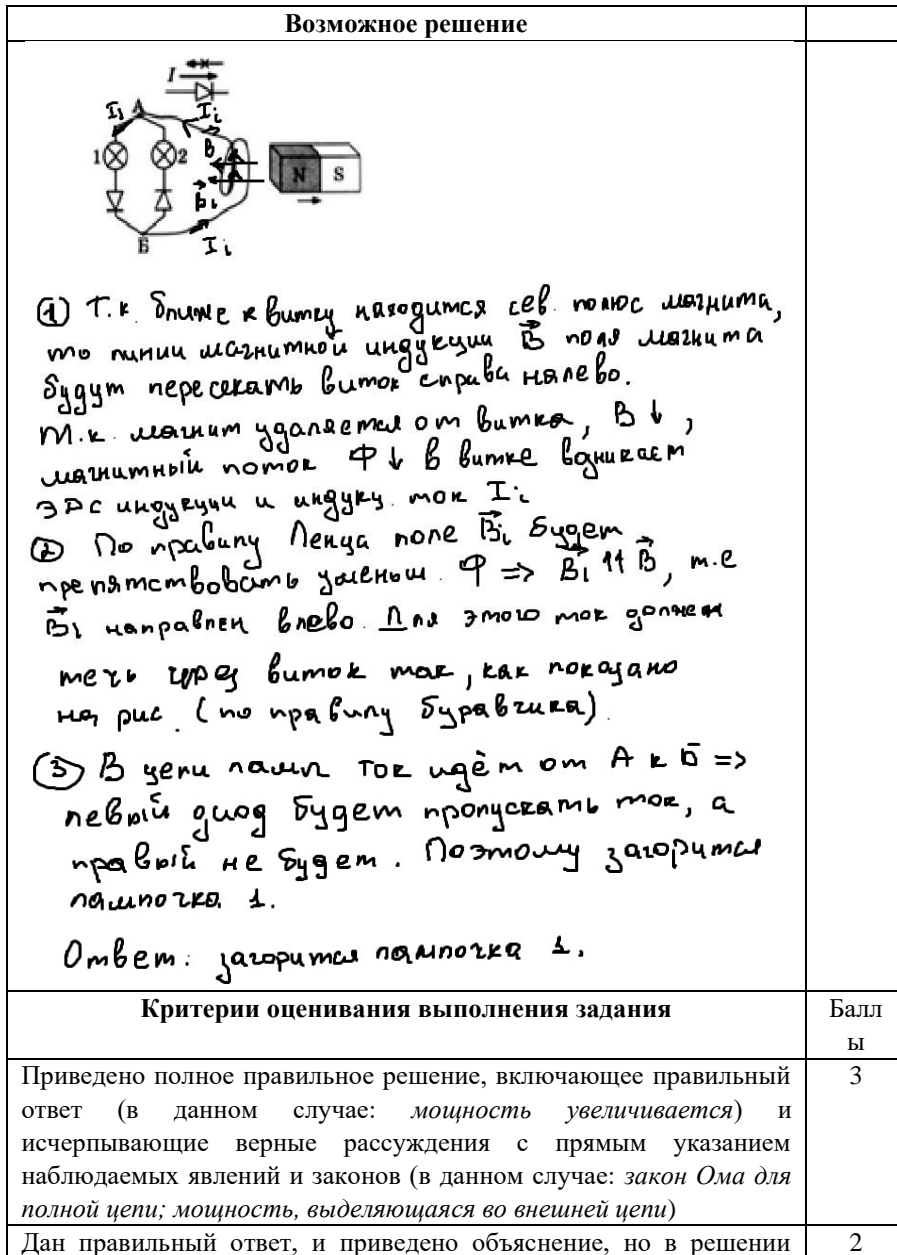 Возможное решение
I
I₁ А Iᵢ
1 2 B
N S
Bᵢ
Б Iᵢ
① Т.к. ближе к витку находится сев. полюс магнита,
то линии магнитной индукции B⃗ поля магнита
будут пересекать виток справа налево.
Т.к. магнит удаляется от витка, B ↓,
магнитный поток Ф ↓ в витке возникает
ЭДС индукции и индукц. ток Iᵢ
② По правилу Ленца поле B⃗ᵢ будет
препятствовать уменьш. Ф => B⃗ᵢ ↑↑ B⃗, т.е
B⃗ᵢ направлен влево. Для этого ток должен
течь через виток так, как показано
на рис. (по правилу буравчика)
③ В цепи ламп ток идёт от А к Б =>
левый диод будет пропускать ток, а
правый не будет. Поэтому загорится
лампочка 1.
Ответ: загорится лампочка 1.
Критерии оценивания выполнения задания Балл
ы
Приведено полное правильное решение, включающее правильный 3
ответ (в данном случае: мощность увеличивается) и
исчерпывающие верные рассуждения с прямым указанием
наблюдаемых явлений и законов (в данном случае: закон Ома для
полной цепи; мощность, выделяющаяся во внешней цепи)
Дан правильный ответ, и приведено объяснение, но в решении 2